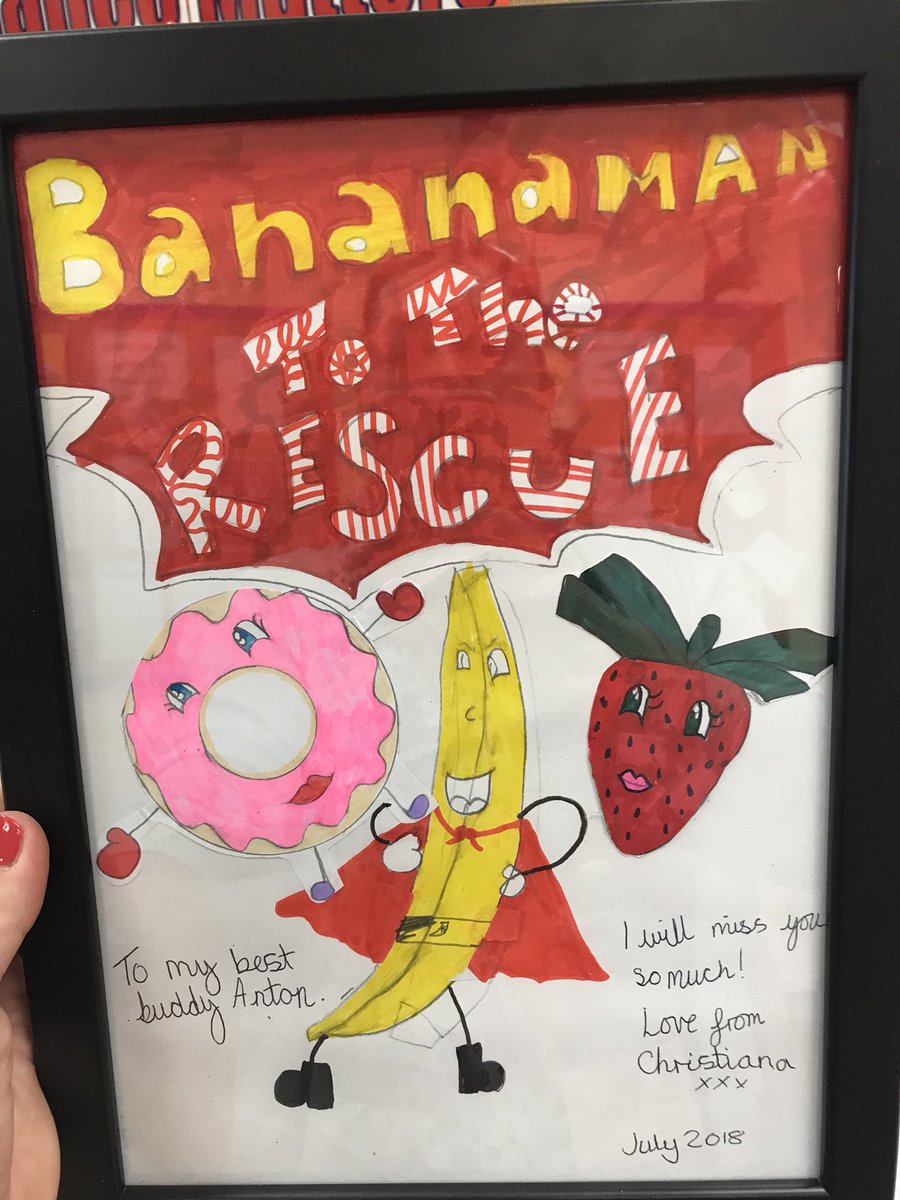 BananaMAN
To The
RESCUE
To my best
buddy Anton.
I will miss you
so much!
Love from
Christiana
xxx
July 2018